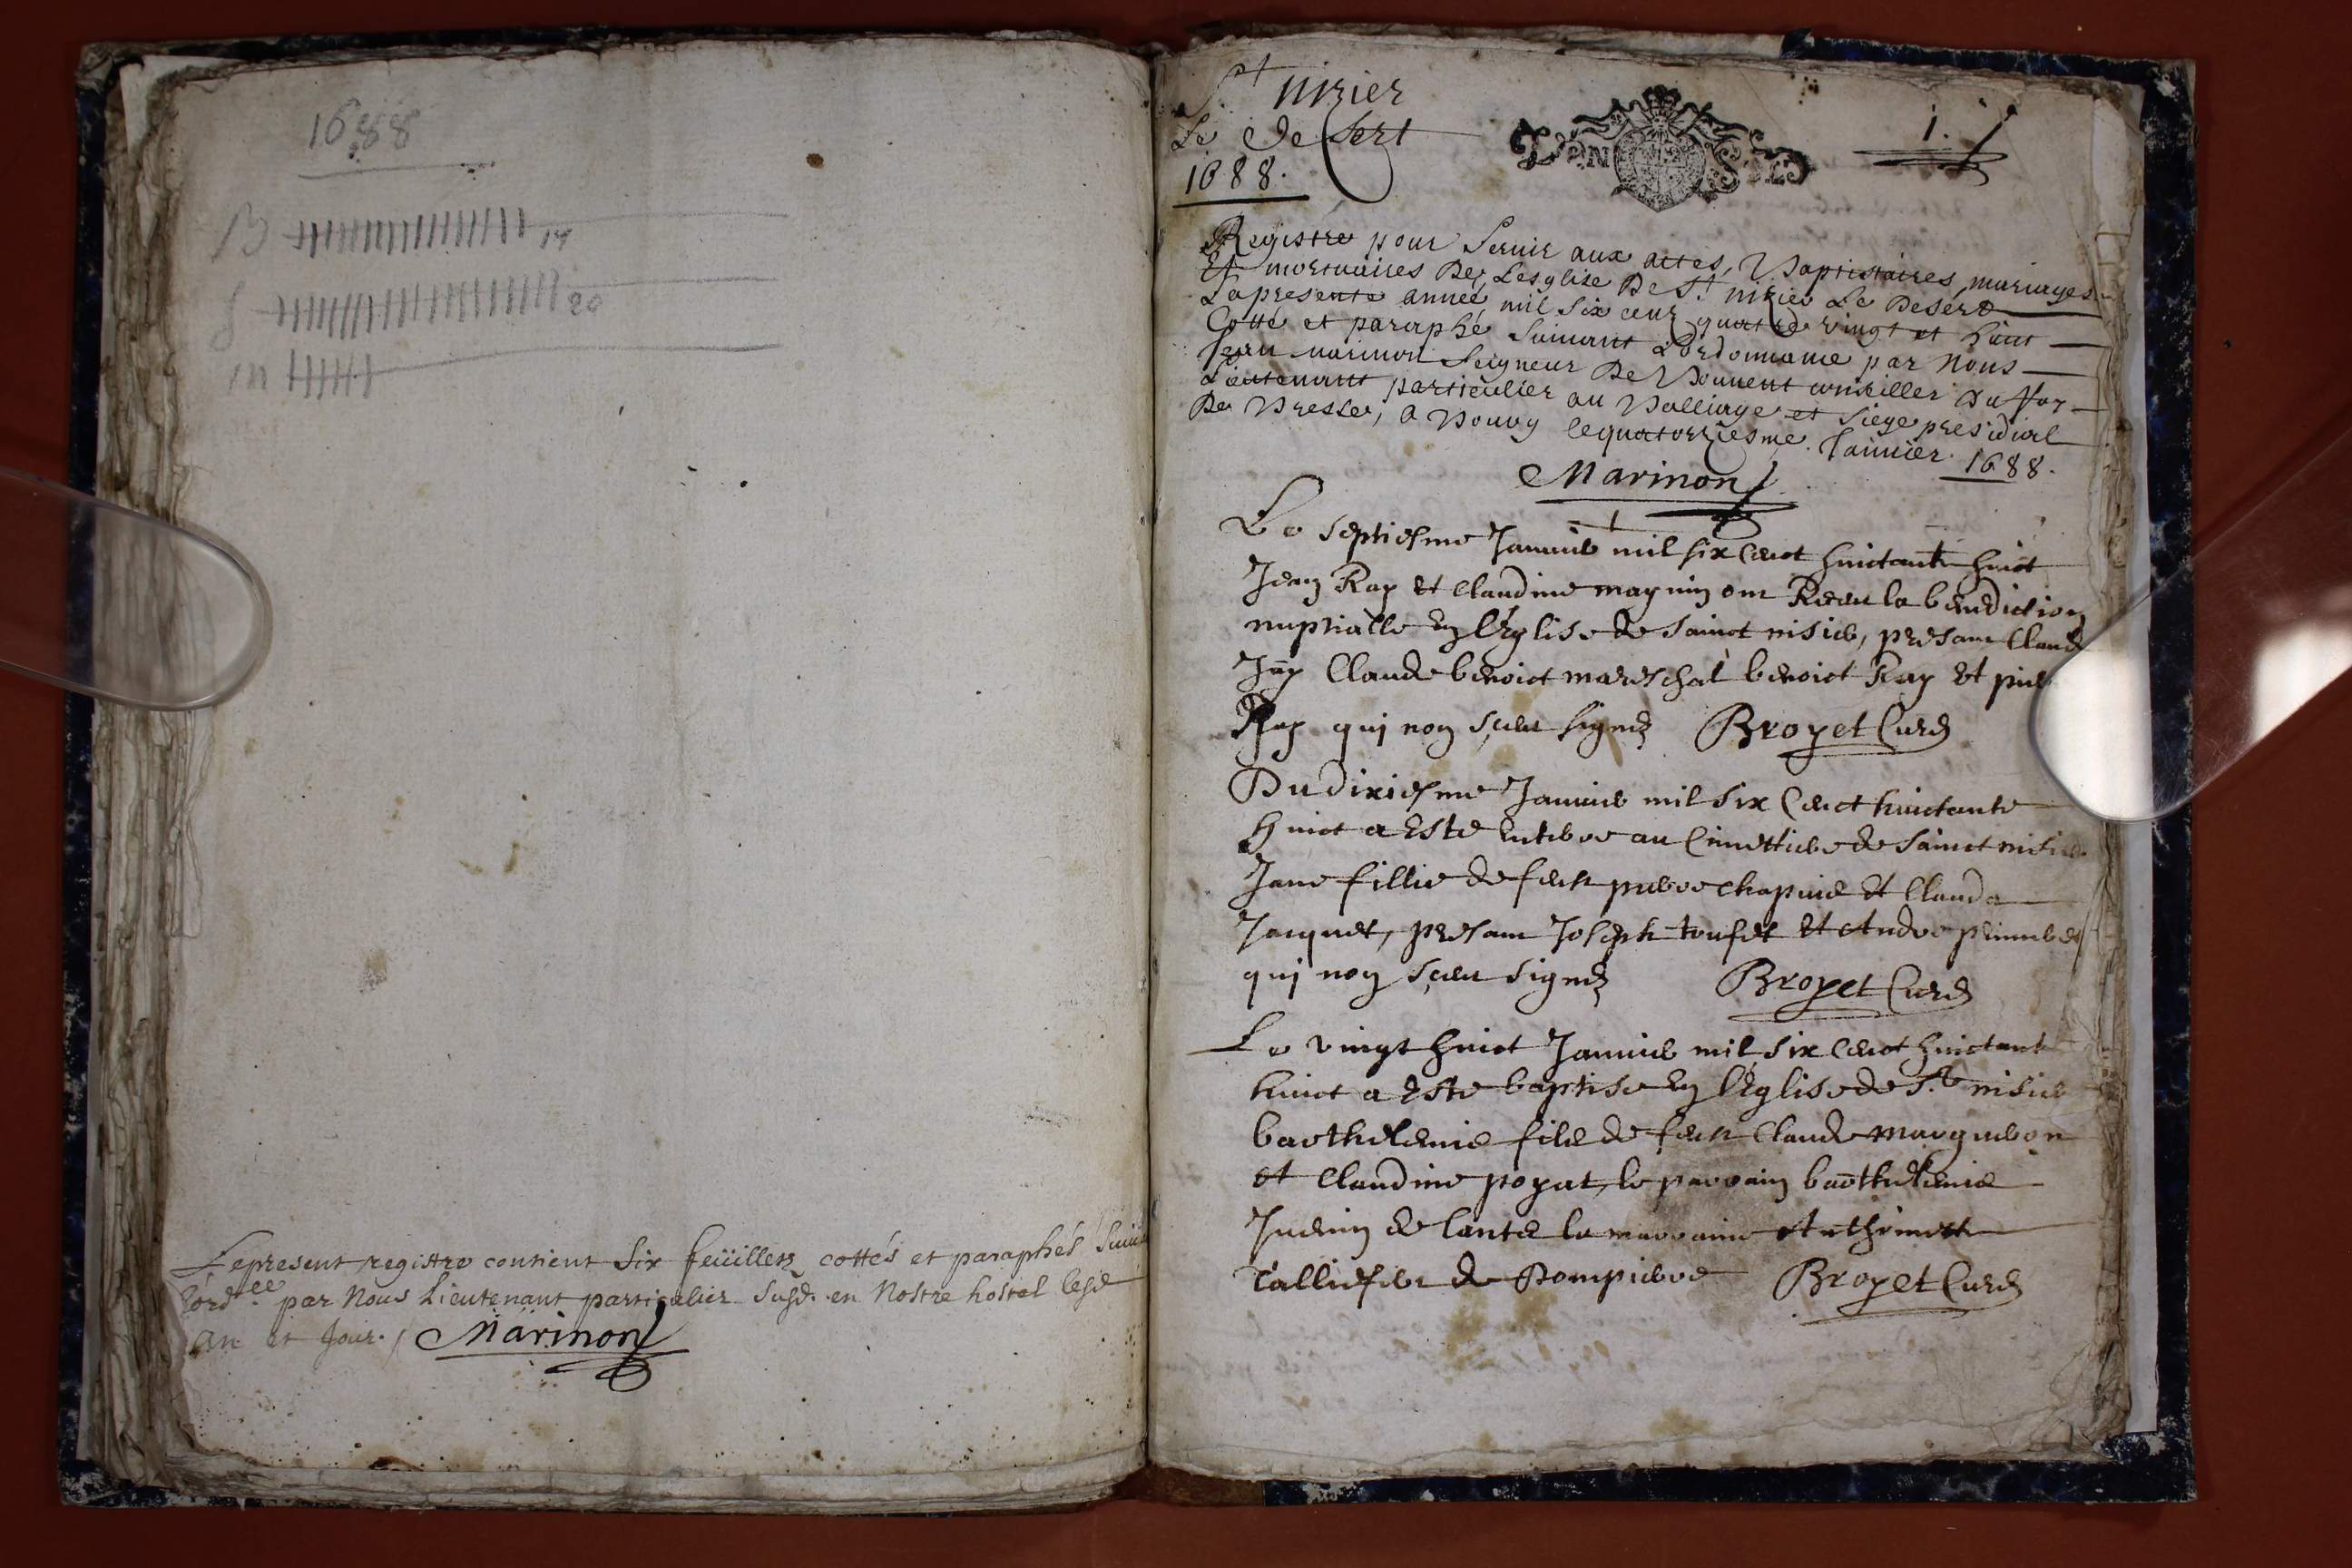 1688
B 19
S 20
m
Le present registre contient six feüillets cottés et paraphés suiu
l'ord.ce par Nous Lieutenant particulier susd. en Nostre hostel lesd
an et jour. Marinon
St nizier
Le Desert
1688.
1.
Registre pour seruir aux actes, Baptistaires, mariages
Et mortuaires De Lesglise De St. nizier Le Desert
La presente année mil six cens quatre vingt et huit
Cotté et paraphé suiuant L'ordonnance par Nous
Jean marinon Seigneur De Bouuent conseiller Du Roy
Lieutenant particulier au Balliage et siege presidial
De Bresse, a Bourg le quatorziesme Januier 1688.
Marinon
Le septiesme Januier mil six Cent huictante huict
Jean Ray et Claudine magnin ont Receu la benediction
nuptialle en l'Eglise de Sainct nisier, presant Claude
Claude benoict mareschal benoict Ray et pierre
Ray qui non sçeu signez Broyet Curé
Du dixiesme Januier mil six Cent huictante
huict a Esté enterree au Cimettiere de Sainct nisier
Jane fillie de feu pierre chapuis et Clauda
Jacquet, presant Joseph toufet et Andre
qui non sçeu signez Broyet Curé
Le vingt huict Januier mil six Cent huictante
huict a Esté baptisé en l'Eglise de St. nisier
barthelemie fils de feu Claude margueron
et Claudine poyat, le parrain barthelemie
de la marraine Anthoinette
de Dompierre Broyet Curé